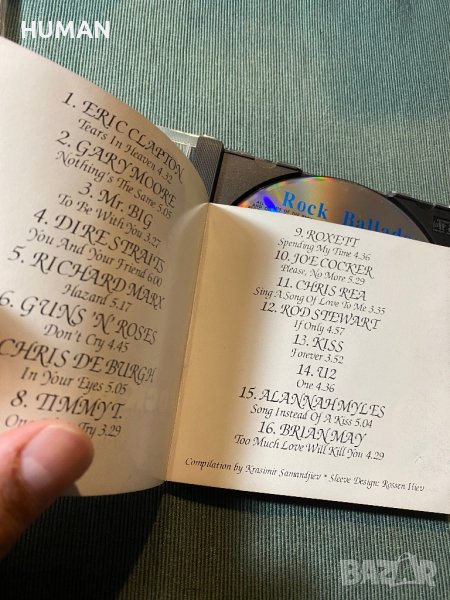 HUMAN
1. ERIC CLAPTON
Tears In Heaven 4.32
2. GARY MOORE
Nothing's The Same 5.05
3. Mr. BIG
To Be With You 3.27
4. DIRE STRAITS
You And Your Friend 6.00
5. RICHARD MARX
Hazard 5.17
6. GUNS 'N' ROSES
Don't Cry 4.45
CHRIS DE BURGH
In Your Eyes 5.05
8. TIMMY T.
One Try 3.29
Rock Ballad
9. ROXETT
Spending My Time 4.36
10. JOE COCKER
Please, No More 5.29
11. CHRIS REA
Sing A Song Of Love To Me 3.35
12. ROD STEWART
If Only 4.57
13. KISS
Forever 3.52
14. U2
One 4.36
15. ALANNAH MYLES
Song Instead Of A Kiss 5.04
16. BRIAN MAY
Too Much Love Will Kill You 4.29
Compilation by Krasimir Samandjiev * Sleeve Design: Rossen Iliev
BAZAR